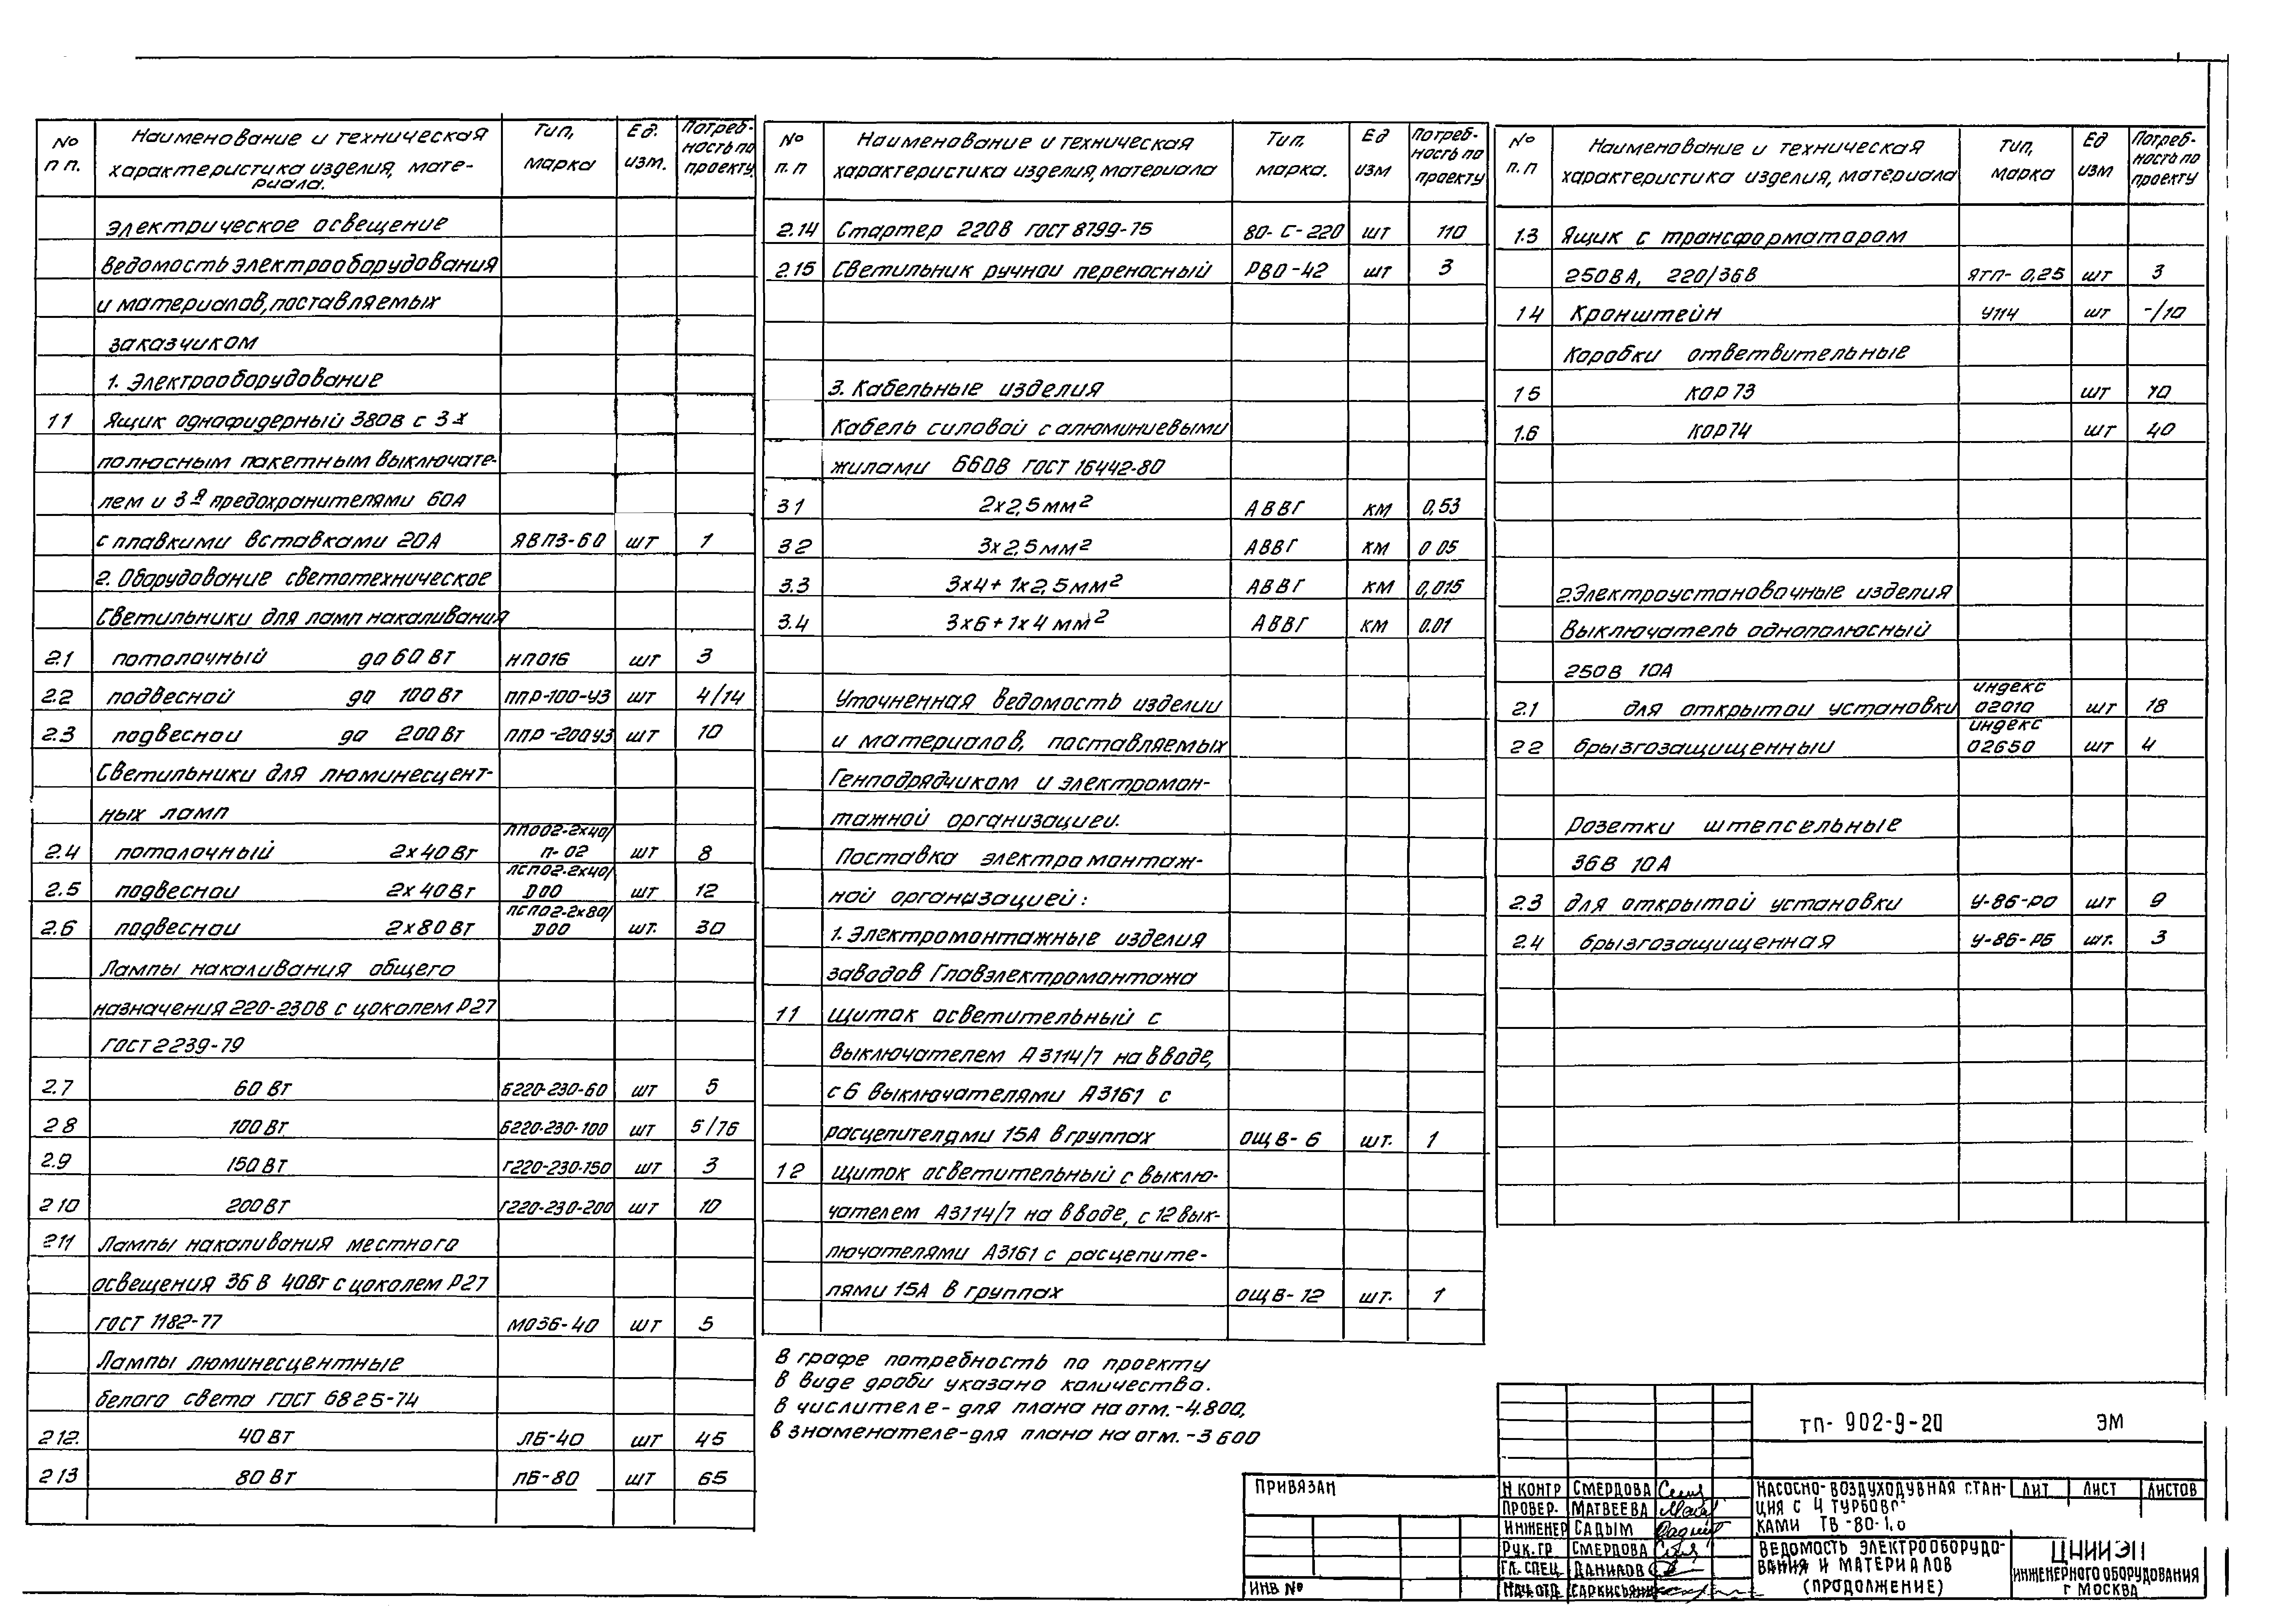 № п п. | Наименование и техническая характеристика изделия, мате-риала. | Тип, марка | Ед. изм. | Потреб-ность по проекту
Электрическое освещение
Ведомость электрооборудования
и материалов, поставляемых
заказчиком
1. Электрооборудование
1 1 Ящик однофидерный 380в с 3х
полюсным пакетным выключате-
лем и 3я предохранителями 60А
с плавкими вставками 20А ЯВПЗ-60 шт 1
2. Оборудование светотехническое
Светильники для ламп накаливания
2.1 потолочный до 60 Вт НП016 шт 3
2.2 подвесной до 100 Вт ППР-100-У3 шт 4/14
2.3 подвесной до 200 Вт ППР-200У3 шт 10
Светильники для люминесцент-
ных ламп
2.4 потолочный 2х40 Вт ЛПО02-2х40/П-02 шт 8
2.5 подвесной 2х40 Вт ЛСП02-2х40/D00 шт 12
2.6 подвесной 2х80 Вт ЛСП02-2х80/D00 шт. 30
Лампы накаливания общего
назначения 220-230В с цоколем Р27
ГОСТ 2239-79
2.7 60 Вт Б220-230-60 шт 5
2 8 100 Вт Б220-230-100 шт 5/76
2.9 150 Вт Г220-230-150 шт 3
2 10 200 Вт Г220-230-200 шт 10
2 11 Лампы накаливания местного
освещения 36 В 40Вт с цоколем Р27
ГОСТ 1182-77 МО36-40 шт 5
Лампы люминесцентные
белого света ГОСТ 6825-74
2 12. 40 Вт ЛБ-40 шт 45
2 13 80 Вт ЛБ-80 шт 65
№ п. п | Наименование и техническая характеристика изделия, материала | Тип, марка. | Ед изм | Потреб-ность по проекту
2.14 Стартер 220В ГОСТ 8799-75 80-С-220 шт 110
2.15 Светильник ручной переносный РВО-42 шт 3
3. Кабельные изделия
Кабель силовой с алюминиевыми
жилами 660В ГОСТ 16442-80
3 1 2х2,5 мм² АВВГ км 0,53
3 2 3х2,5 мм² АВВГ км 0 05
3.3 3х4+1х2,5 мм² АВВГ км 0,015
3.4 3х6+1х4 мм² АВВГ км 0.01
Уточненная ведомость изделий
и материалов, поставляемых
Генподрядчиком и электромон-
тажной организацией.
Поставка электромонтаж-
ной организацией:
1. Электромонтажные изделия
заводов Главэлектромонтажа
1 1 щиток осветительный с
выключателем А3114/7 на вводе,
с 6 выключателями А3161 с
расцепителями 15А в группах ОЩВ-6 шт. 1
1 2 щиток осветительный с выклю-
чателем А3114/7 на вводе, с 12 вык-
лючателями А3161 с расцепите-
лями 15А в группах ОЩВ-12 шт. 1
В графе потребность по проекту
в виде дроби указано количество.
в числителе - для плана на отм. -4.800,
в знаменателе - для плана на отм. -3 600
№ п. п | Наименование и техническая характеристика изделия, материала | Тип, марка | Ед изм | Потреб-ность по проекту
1.3 Ящик с трансформатором
250ВА, 220/36В ЯТП-0,25 шт 3
1 4 Кронштейн У114 шт -/10
Коробки ответвительные
1 5 КОР 73 шт 10
1.6 КОР 74 шт 40
2 Электроустановочные изделия
Выключатель однополюсный
250В 10А
2.1 для открытой установки индекс 02010 шт 18
2 2 брызгозащищенный индекс 02650 шт 4
Розетки штепсельные
36В 10А
2.3 для открытой установки У-86-РО шт 9
2.4 брызгозащищенная У-86-РБ шт. 3
ТП- 902-9-20 ЭМ
ПРИВЯЗАН
ИНВ №
Н КОНТР СМЕРДОВА
ПРОВЕР. МАТВЕЕВА
ИНЖЕНЕР САДЫМ
РУК. ГР. СМЕРДОВА
ГЛ. СПЕЦ ДАНИЛОВ
НАЧ. ОТД. САРКИСЬЯНЦ
НАСОСНО-ВОЗДУХОДУВНАЯ СТАН-
ЦИЯ С 4 ТУРБОВО
КАМИ ТВ-80-1,6
ЛИТ ЛИСТ ЛИСТОВ
ВЕДОМОСТЬ ЭЛЕКТРООБОРУДО-
ВАНИЯ И МАТЕРИАЛОВ
(ПРОДОЛЖЕНИЕ)
ЦНИИЭП
ИНЖЕНЕРНОГО ОБОРУДОВАНИЯ
Г МОСКВА